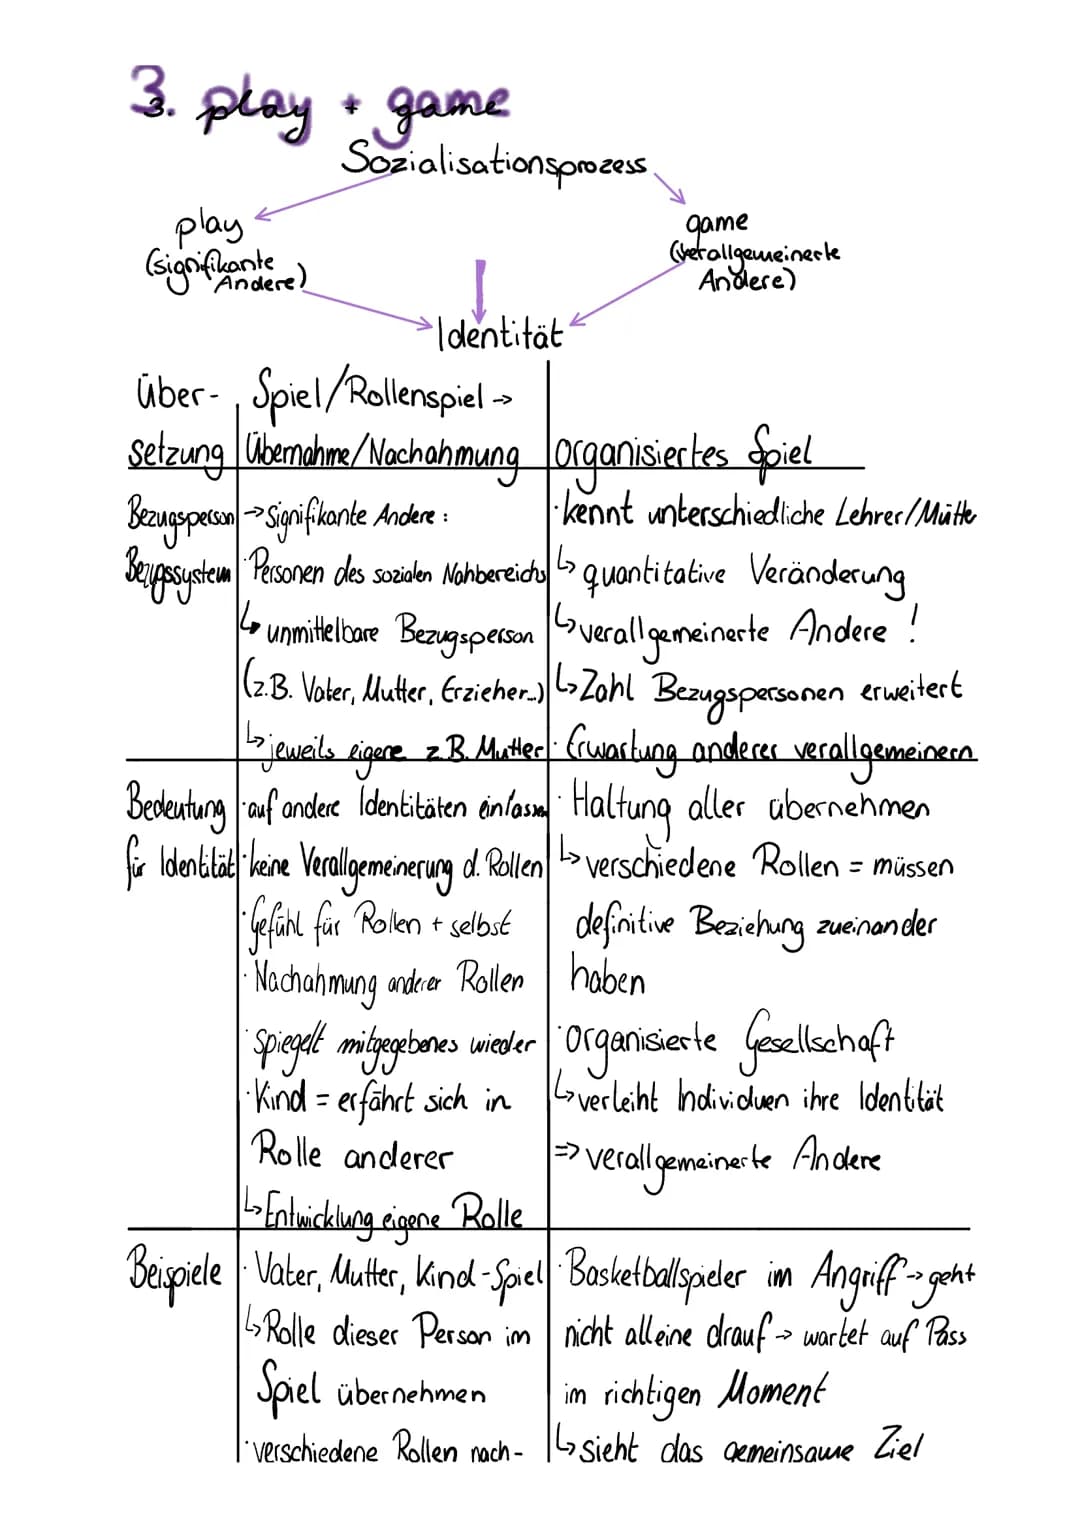 3. play + game
Sozialisationsprozess
play
(signifikante
Andere)
game
(verallgemeinerte
Andere)
Identität
Über-
setzung
Spiel/Rollenspiel →
Übernahme/Nachahmung
organisiertes Spiel
Bezugsperson
Bezugssystem
→ Signifikante Andere:
· Personen des sozialen Nahbereichs
↳ unmittelbare Bezugsperson
(z.B. Vater, Mutter, Erzieher...)
↳ jeweils eigene z.B. Mutter
· kennt unterschiedliche Lehrer/Mütte
↳ quantitative Veränderung
↳ verallgemeinerte Andere !
↳ Zahl Bezugspersonen erweitert
· Erwartung anderer verallgemeinern
Bedeutung
für Identität
· auf andere Identitäten einlassen
· keine Verallgemeinerung d. Rollen
· Gefühl für Rollen + selbst
· Nachahmung anderer Rollen
· spiegelt mitgegebenes wieder
· Kind = erfährt sich in
Rolle anderer
↳ Entwicklung eigene Rolle
· Haltung aller übernehmen
↳ verschiedene Rollen = müssen
definitive Beziehung zueinander
haben
· organisierte Gesellschaft
↳ verleiht Individuen ihre Identität
=> verallgemeinerte Andere
Beispiele
· Vater, Mutter, Kind-Spiel
↳ Rolle dieser Person im
Spiel übernehmen
· verschiedene Rollen nach-
· Basketballspieler im Angriff → geht
nicht alleine drauf → wartet auf Pass
im richtigen Moment
↳ sieht das gemeinsame Ziel